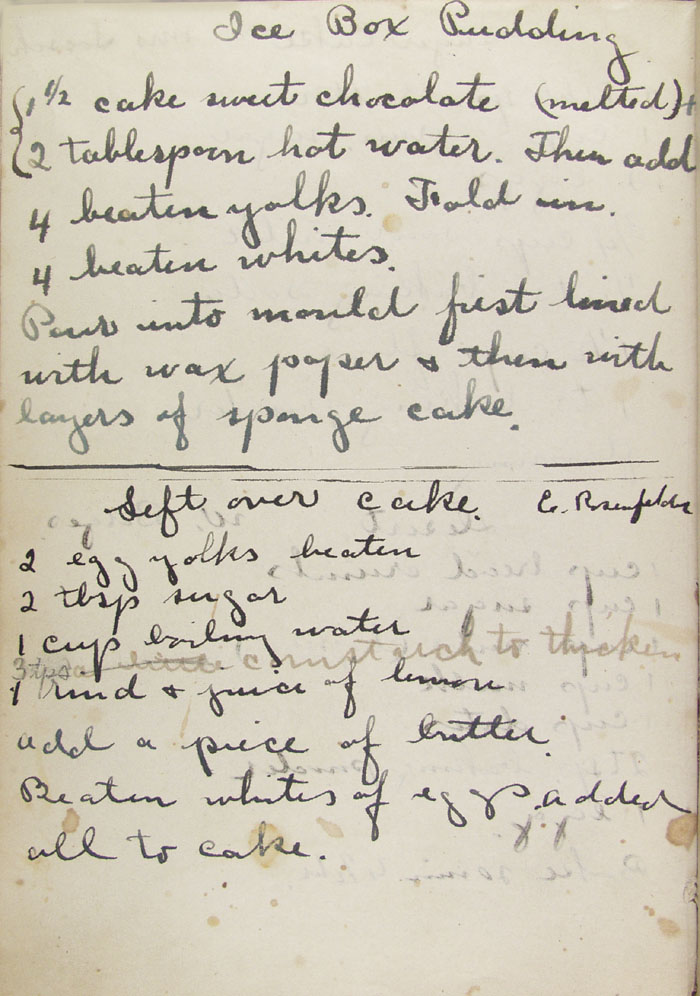 Ice Box Pudding
1 1/2 cake sweet chocolate (melted) +
2 tablespoon hot water. Then add
4 beaten yolks. Fold in.
4 beaten whites.
Pour into mould first lined
with wax paper & then with
layers of sponge cake.
Left over cake. E. Rosenfelder
2 egg yolks beaten
2 tbsp sugar
1 cup boiling water
3 tsps a little cornstarch to thicken
1 rind & juice of lemon
add a piece of butter.
Beaten whites of eggs added
all to cake.